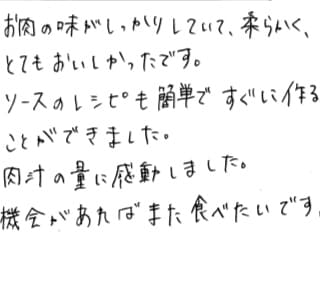 お肉の味がしっかりしていて、柔らかく、
とてもおいしかったです。
ソースのレシピも簡単ですぐに作る
ことができました。
肉汁の量に感動しました。
機会があればまた食べたいです。